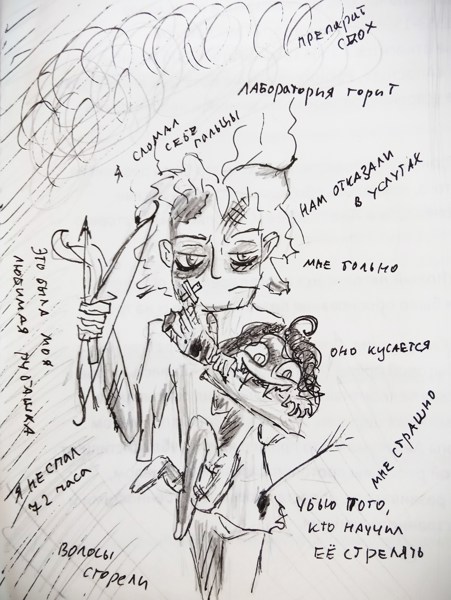 ПРЕПАРАТ
СДОХ
ЛАБОРАТОРИЯ ГОРИТ
Я СЛОМАЛ
СЕБЕ ПАЛЬЦЫ
НАМ ОТКАЗАЛИ
В УСЛУГАХ
МНЕ БОЛЬНО
ЭТО БЫЛА МОЯ
ЛЮБИМАЯ РУБАШКА
ОНО КУСАЕТСЯ
МНЕ СТРАШНО
Я НЕ СПАЛ
72 ЧАСА
УБЬЮ ТОГО,
КТО НАУЧИЛ
ЕЁ СТРЕЛЯТЬ
ВОЛОСЫ
СГОРЕЛИ